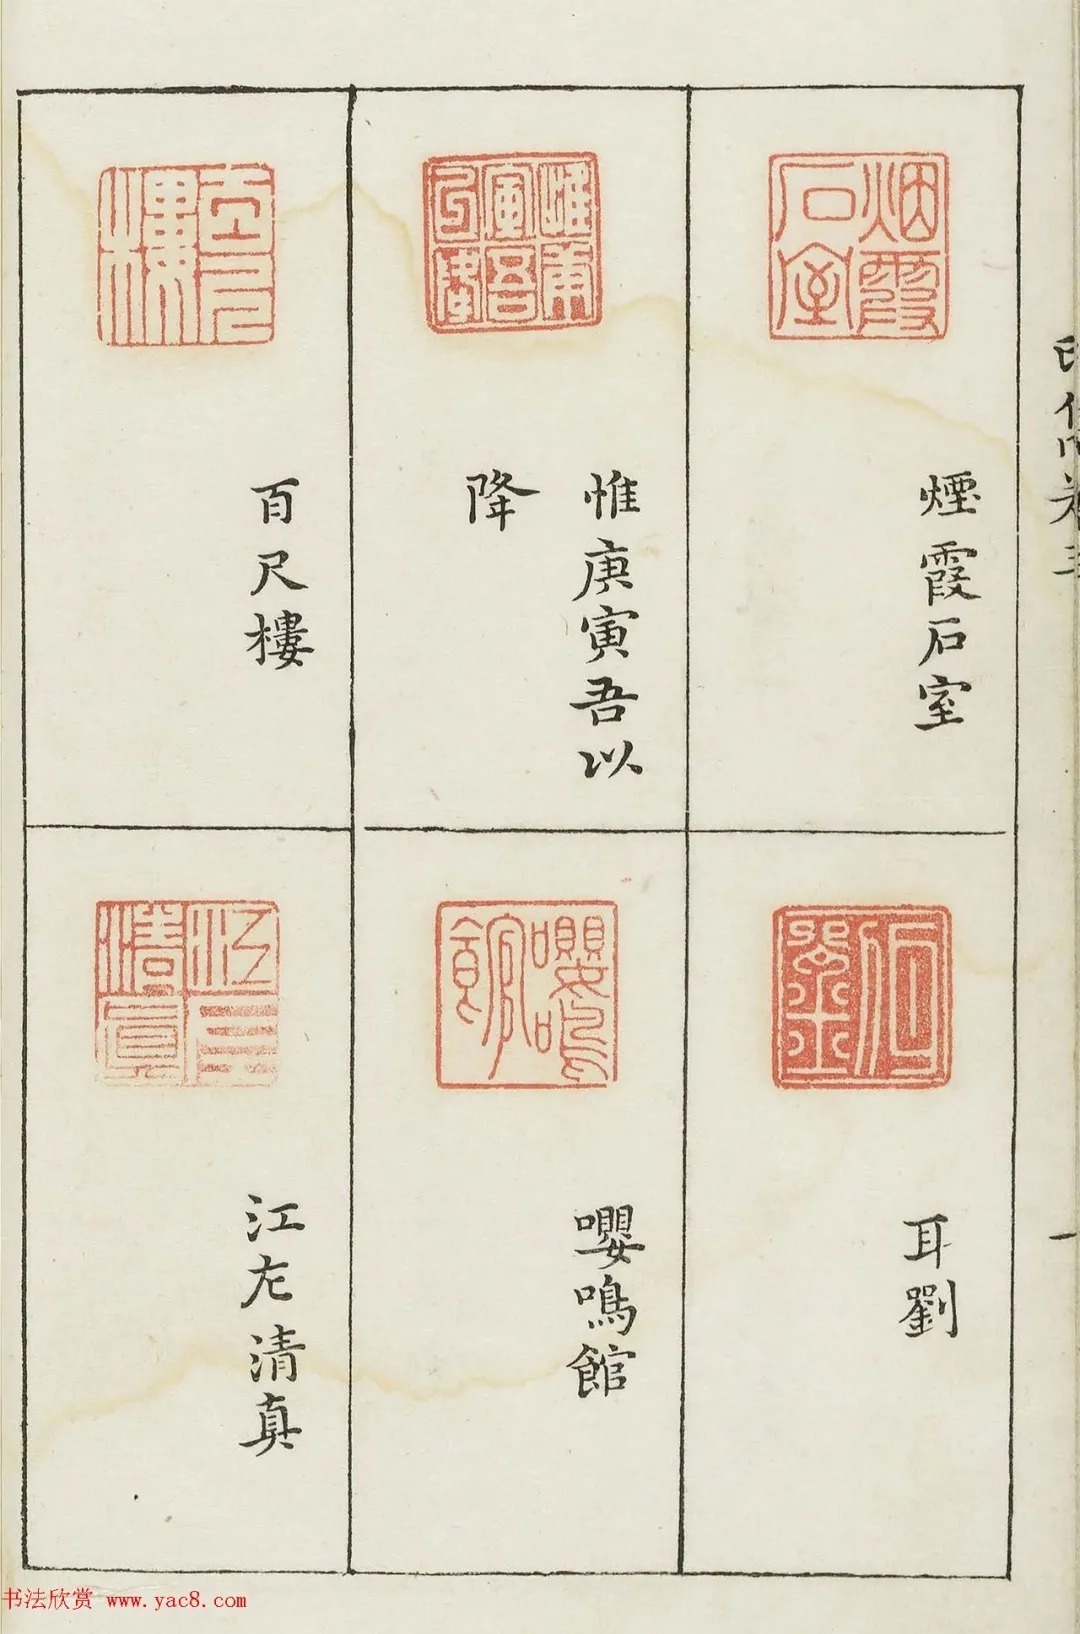 煙霞石室
惟庚寅吾以
降
百尺樓
耳劉
嚶鳴館
江左清真
书法欣赏 www.yac8.com